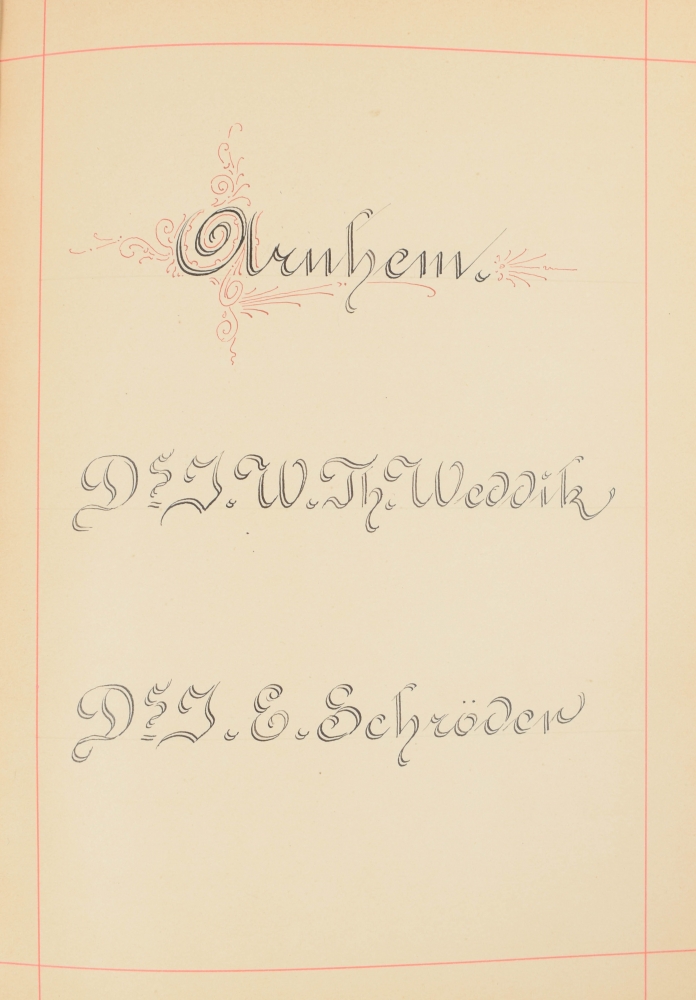 Arnhem.
Dr. J. W. Th. Weddik
Dr. J. E. Schröder